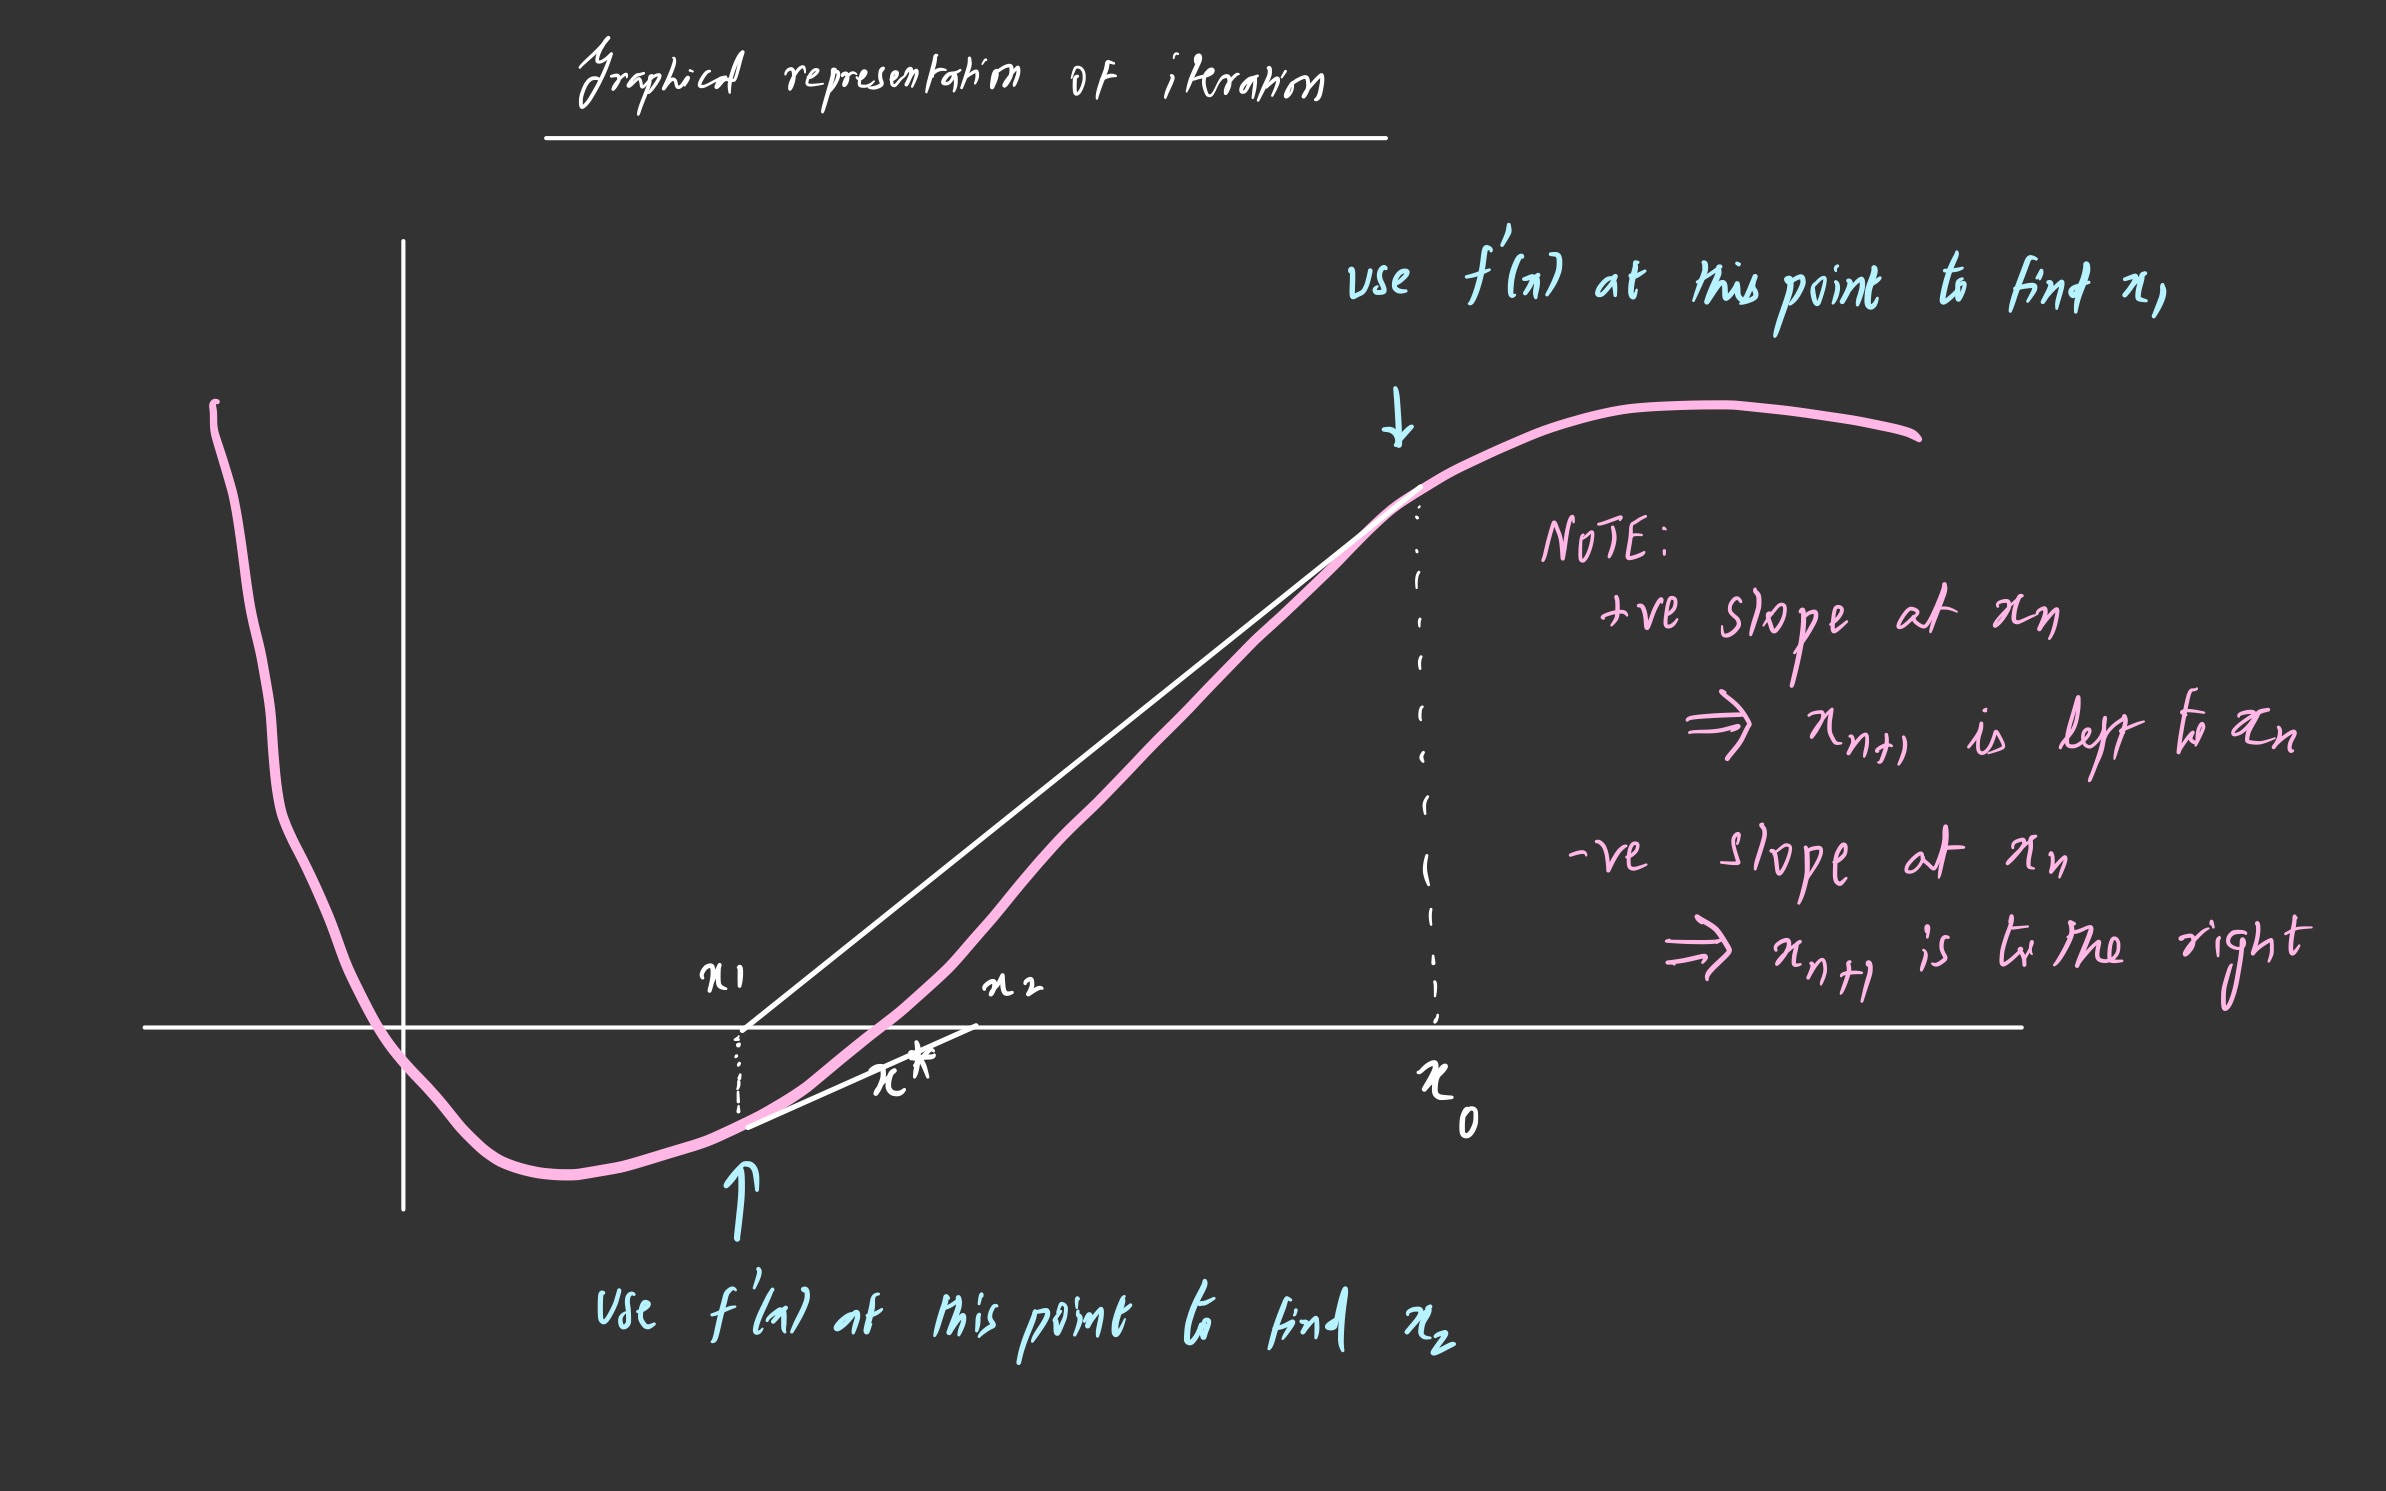 Graphical representation of iteration
use f'(x) at this point to find x₁
NOTE:
+ve slope at xn
⇒ xn+1 is left to xn
-ve slope at xn
⇒ xn+1 is to the right
x1
x2
x*
x0
use f'(x) at this point to find x2